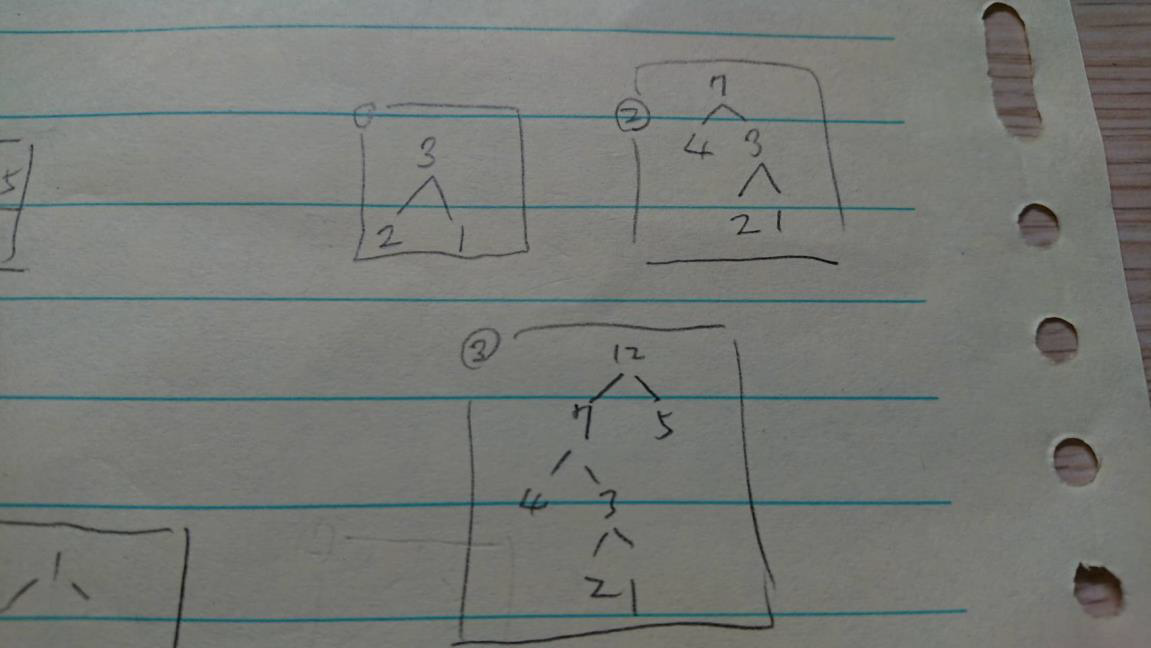 5
3
2 1
②
7
4 3
2 1
③
12
7 5
4 3
2 1
1